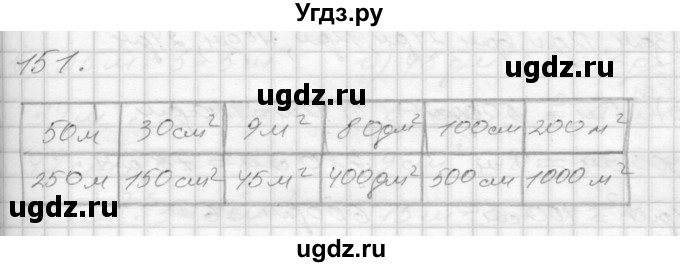 Угдз.ру
151.
ugdz.ru
ugdz.ru
50м 30см² 9м² 80дм² 100см 200м²
250м 150см² 45м² 400дм² 500см 1000м²
ugdz.ru
ugdz.ru
ugdz.ru